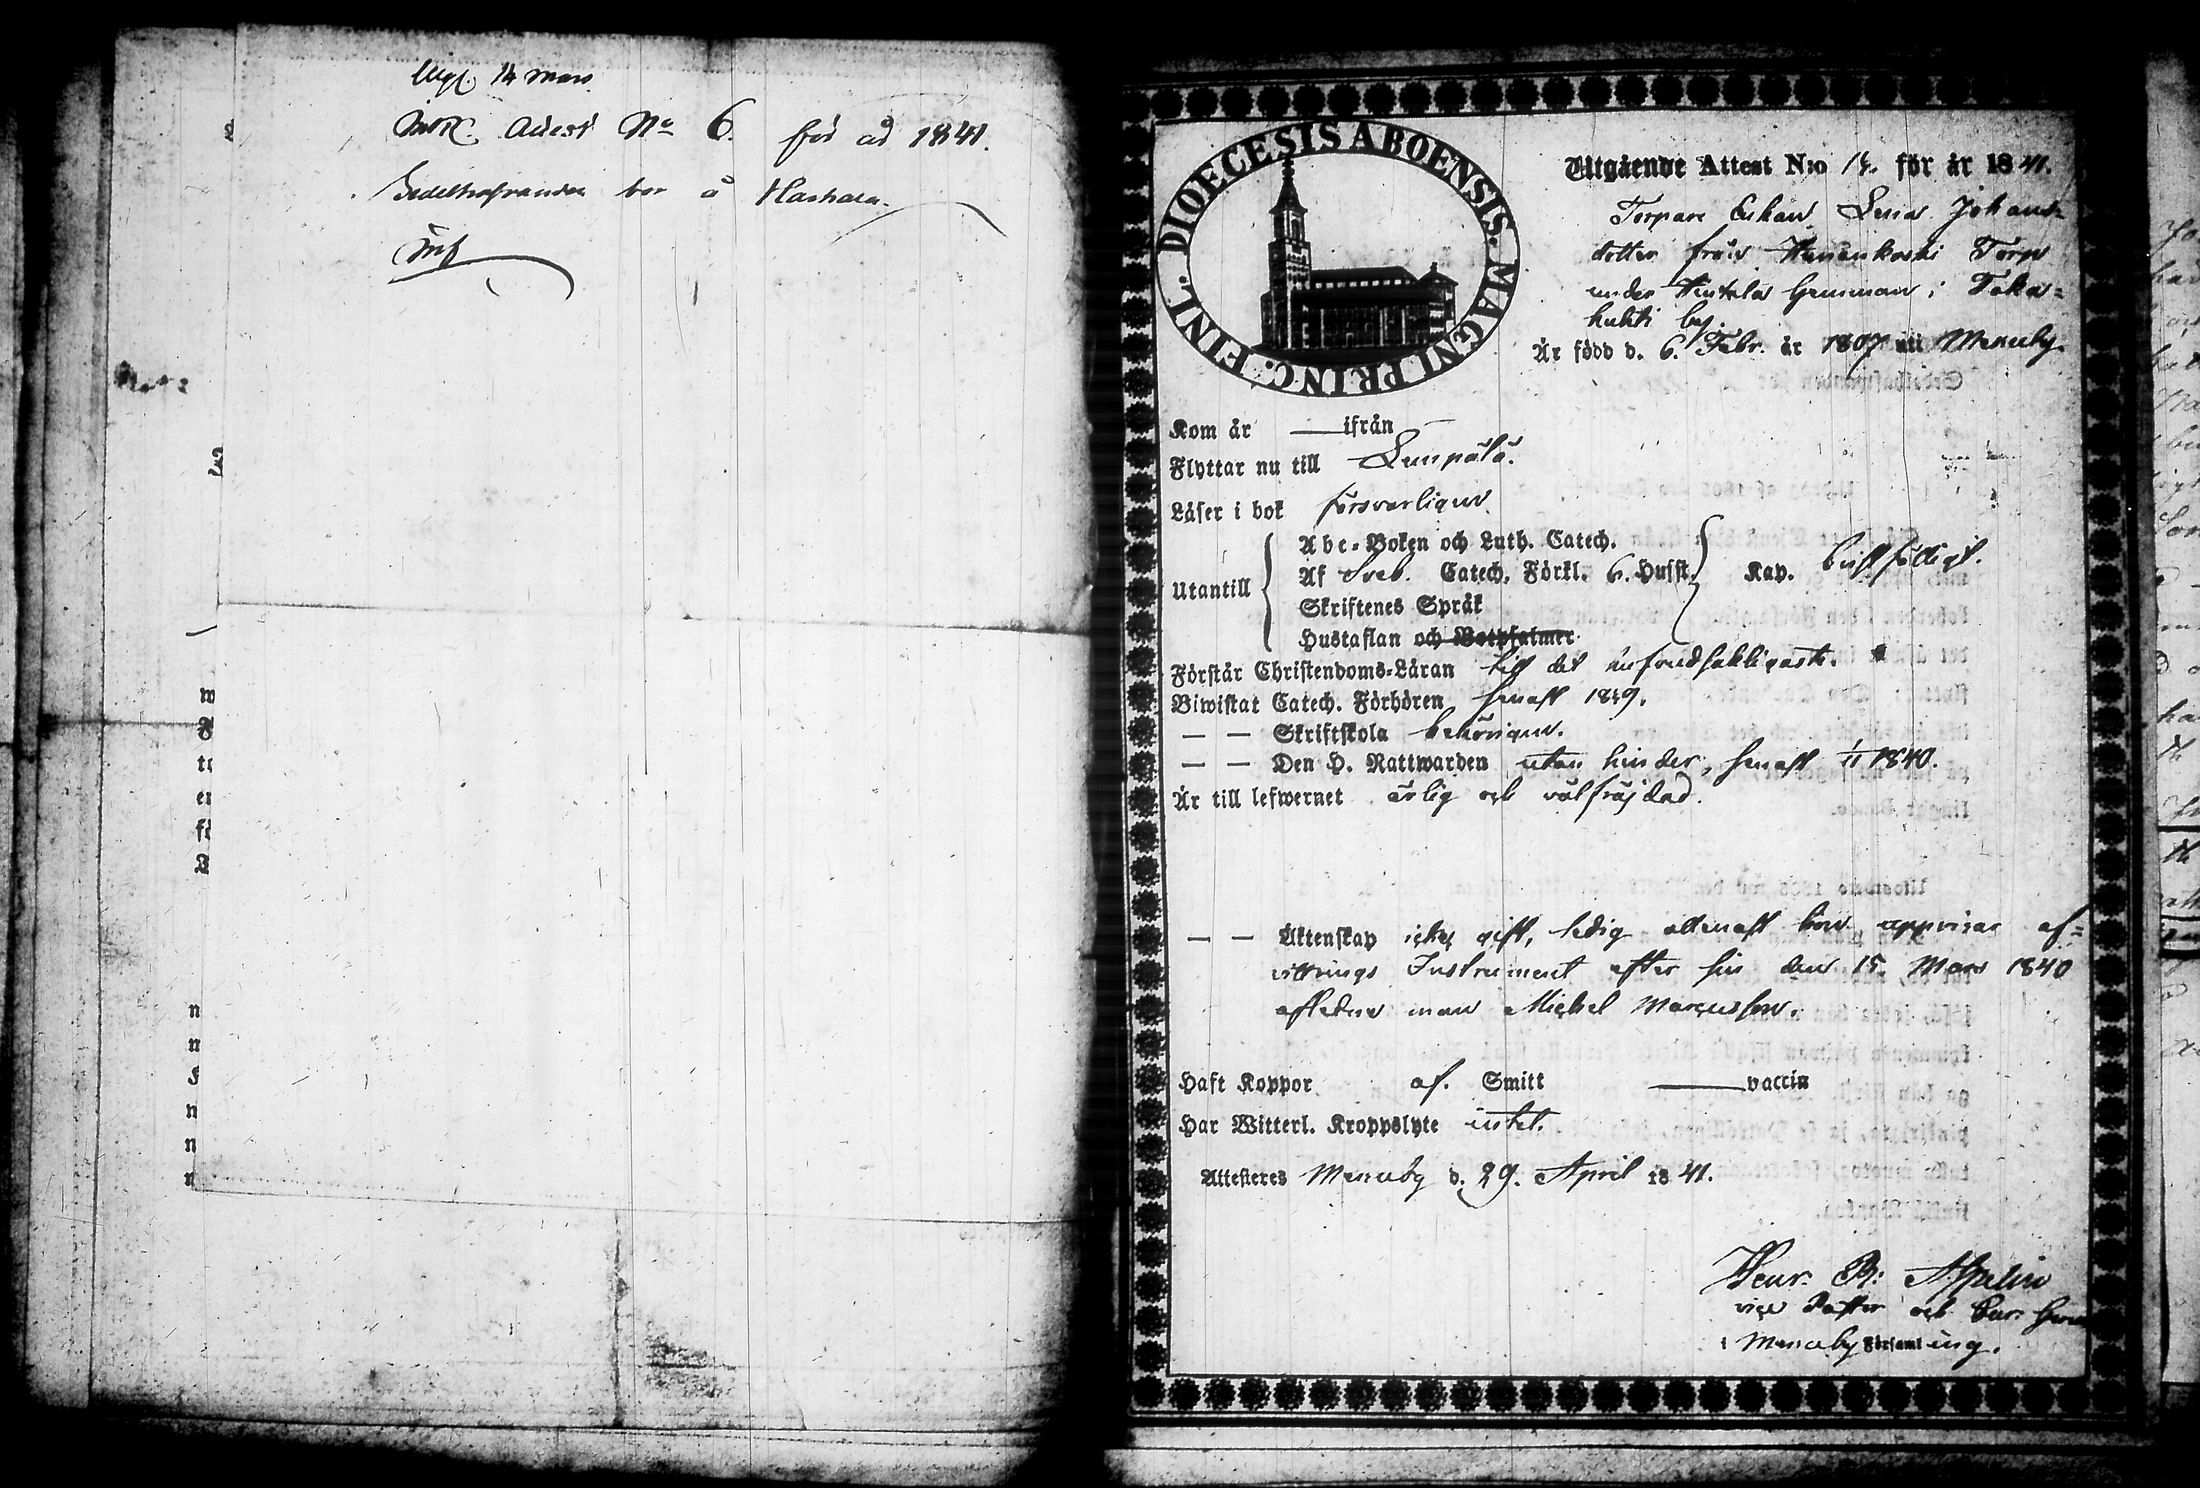 Uppv. 14 mars
Ink. Attest No 6. för år 1841.
Sedelhafvanden bor å Hashara.
DIOECESIS ABOENSIS. MAGNI PRINC. FINL.
Utgående Attest N:o 14. för år 1841.
Torpare Enkan Lena Johans-
dotter från Torp
under i Taka-
huhti by.
Är född d. 6. Febr. år 1807 uti Messuby.
Kom år — ifrån —
Flyttar nu till Lempälä.
Läser i bok försvarligen.
Utantill
Abc-Boken och Luth. Catech.
Af Sveb. Catech. Förkl. 6. Husst. Kap.
Skriftenes Språk
Hustaflan och Botpsalmer
Förstår Christendoms-Läran till det
Biwistat Catech. Förhören senast 1839.
— — Skriftskola behörigen.
— — Den H. Nattwarden utan hinder, senast 1/11 1840.
Är till lefwernet ärlig och välfräjdad.
— — Äktenskap icke gift, ledig allenast hon uppvisar af-
vittrings Instrument efter sin den 15. Mars 1840
afledne man Michel Marcusson.
Haft Koppor af. Smitt — vaccin
Har Witterl. Kroppslyte intet.
Attesteres Messuby d. 29. April 1841.
Henr. Aspelin
vice Pastor och
i Messuby Församling.